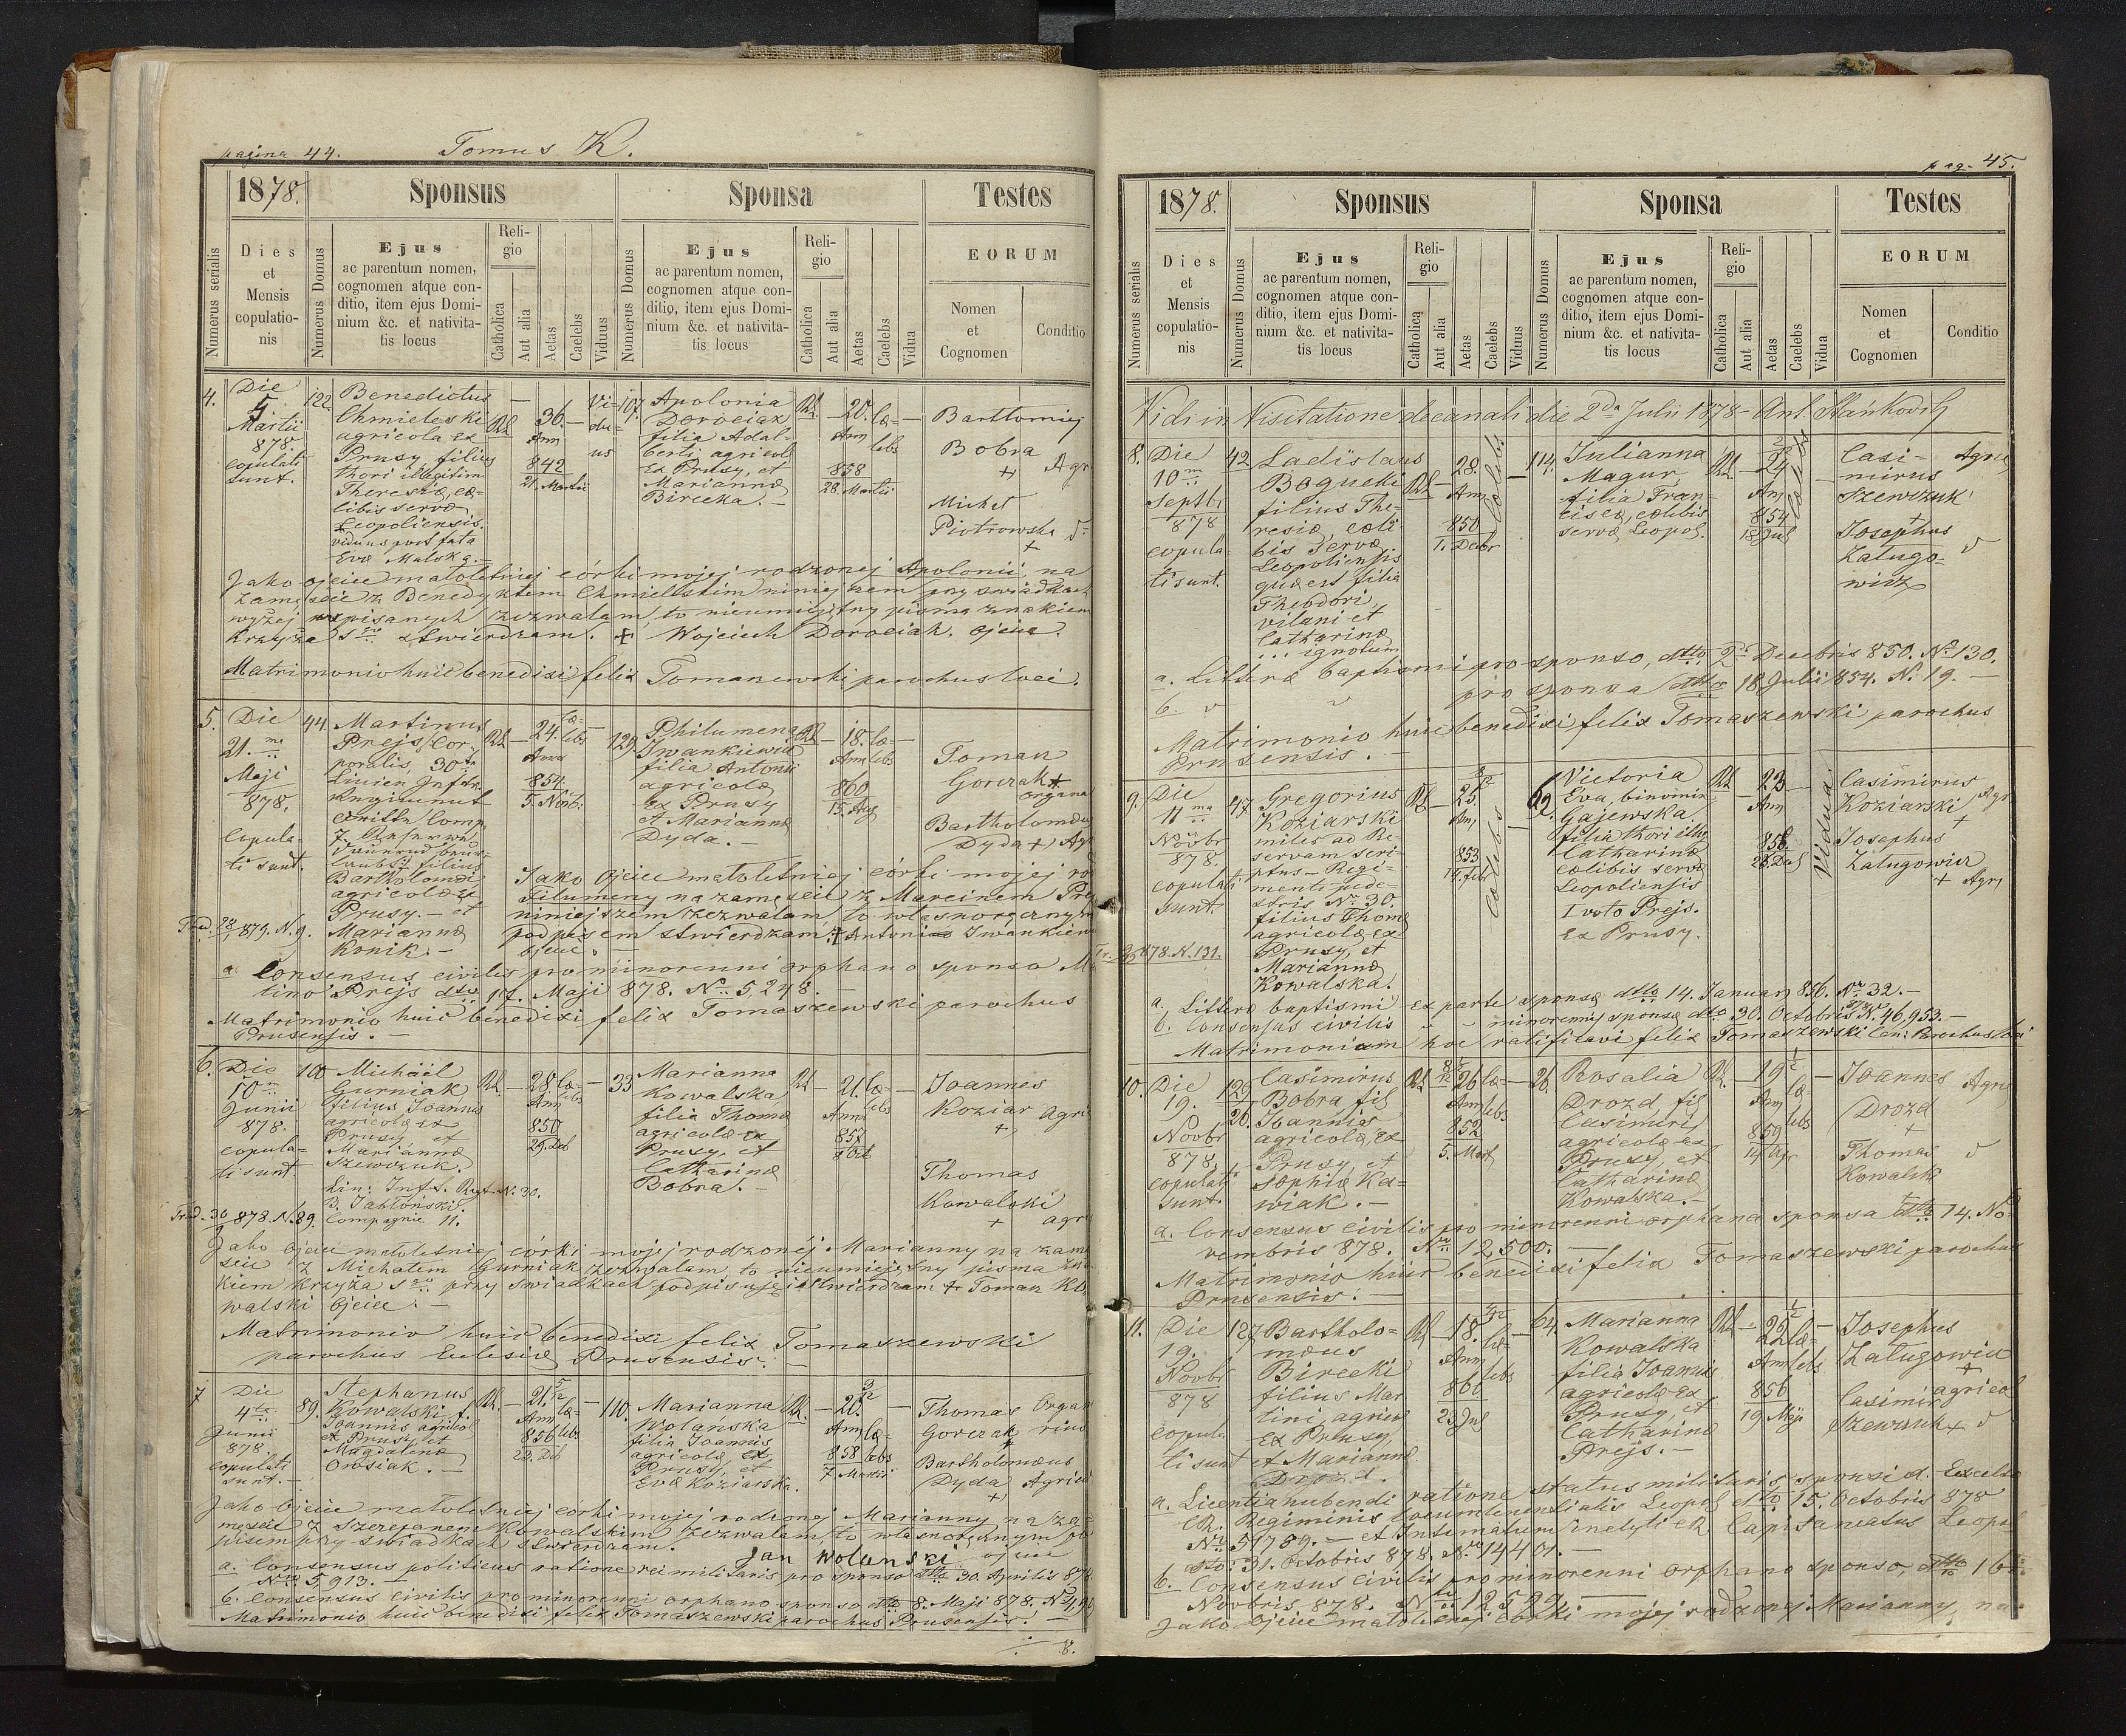 pagina 44.
Tomus K.
1878.
Sponsus
Sponsa
Testes
Numerus serialis
Dies
et
Mensis
copulatio-
nis
Numerus Domus
Ejus
ac parentum nomen,
cognomen atque con-
ditio, item ejus Domi-
nium &c. et nativita-
tis locus
Reli-
gio
Catholica
Aut alia
Aetas
Caelebs
Viduus
Numerus Domus
Ejus
ac parentum nomen,
cognomen atque con-
ditio, item ejus Domi-
nium &c. et nativita-
tis locus
Reli-
gio
Catholica
Aut alia
Aetas
Caelebs
Vidua
EORUM
Nomen
et
Cognomen
Conditio
4.
Die
5
Martii
878
copulati
sunt.
122.
Benedictus
Chmieleski
agricola ex
Prusy, filius
thori illegitim
Theresiæ, cæ-
libis servæ
Leopoliensis.
viduus post fata
Evæ Malska.
Rl
36.
Ann
842
21. Martii
Vi-
du-
us
107.
Apolonia
Dorociak
filia Adal-
berti agricol
ex Prusy, et
Mariannæ
Birecka.
Rl
20.
Ann
858
28. Martii
cæ-
lebs
Bartłomiej
Bobra
+
Agr
Michał
Piotrowski
+
Jako ojciec małoletniej córki mojej rodzonej Apolonii, na
zamęście z Benedyktem Chmielskim niniejszem przy świadkach
wyżej wpisanych zezwalam, to nieumiejętny pisma znakiem
krzyża stwierdzam. + Wojciech Dorociak. ojciec.
Matrimonio huic benedixi felix Tomaszewski parochus loci.
5.
Die
21. ma
Maji
878.
copula-
ti sunt.
44.
Martinus
Prejs, Cor-
poralis 30ta
Linien Inftr.
Regiment
Comp
7.
filius
Bartholomæi
agricolæ ex
Prusy. et
Mariannæ
Konik.
Rl
24.
Anno
854
5. Novb.
cæ-
lebs
129.
Philumena
Iwankiewicz
filia Antonii
agricolæ
ex Prusy
et Mariannæ
Dyda.
Rl
18.
Ann
860
15. Aug
cæ-
lebs
Toman
Gorczak +
organa
Bartholomæu
Dyda + Agr
Jako ojciec małoletniej córki mojej ro
Filumeny na zamęście z Marcinem Pre
niniejszem zezwalam, to własnoręcznym
podpisem stwierdzam. + Antoni Iwankiew
ojciec.
879. N. 9.
a. Consensus civilis pro minorenni orphano sponso Ma
tino Prejs dto 17. Maji 878. No 5,248.
Matrimonio huic benedixi felix Tomaszewski parochus
Prusensis.
6.
Die
10 m
Junii
878.
copula-
ti sunt
100
Michaël
Gurniak
filius Joannis
agricolæ ex
Prusy, et
Mariannæ
Szewczuk.
Lin: Inft. Regt. N. 30.
B. Jabłoński.
Compagnie 11.
Rl
28
Ann
850
29. Deb
cæ-
lebs
33
Marianna
Kowalska
filia Thomæ
agricolæ ex
Prusy, et
Catharinæ
Bobra.
Rl
21.
Anno
857
8 Octb
cæ-
lebs
Joannes
Koziar
+
Agri
Thomas
Kowalski
+
agri
878. N. 89.
Jako ojciec małoletniej córki mojej rodzonéj Marianny na zamę
ście z Michałem Gurniak zezwalam, to nieumiejętny pisma zna
kiem krzyża przy świadkach podpisuję i stwierdzam + Toman Ko
walski ojciec.
Matrimonio huic benedixi felix Tomaszewski
parochus Eclesiæ Prusensis.
7
Die
4 ta
Junii
878.
copulati
sunt.
89.
Stephanus
Kowalski f.
Joannis agricol
ex Prusy, et
Magdalenæ
Owsiak.
Rl.
21. 5/12
Ann
856
23. Deb
cæ-
lebs
110.
Marianna
Wolańska
filia Joannis
agricolæ ex
Prusy, et
Evæ Koziarska.
Rl.
20. 3/12
Ann
858
7 Martii
cæ-
lebs
Thomas
Gorczak
+
Organ
rius
Bartholomæus
Dyda
+
Agricol
Jako ojciec małoletniej córki mojej rodzonej Marianny na za-
męście z Szczepanem Kowalskim zezwalam, to własnoręcznym pod
pisem przy świadkach stwierdzam.
Jan Wolanski ojciec
a. Consensus politicus ratione rei militaris pro sponso dto 30. Aprilis 878
No 5,913.
b. Consensus civilis pro minorenni orphano sponso dto 8. Maji 878. N 4,
Matrimonio huic benedixi felix Tomaszewski parochus Prusensis.
8.
pag. 45.
1878.
Sponsus
Sponsa
Testes
Numerus serialis
Dies
et
Mensis
copulatio-
nis
Numerus Domus
Ejus
ac parentum nomen,
cognomen atque con-
ditio, item ejus Domi-
nium &c. et nativita-
tis locus
Reli-
gio
Catholica
Aut alia
Aetas
Caelebs
Viduus
Numerus Domus
Ejus
ac parentum nomen,
cognomen atque con-
ditio, item ejus Domi-
nium &c. et nativita-
tis locus
Reli-
gio
Catholica
Aut alia
Aetas
Caelebs
Vidua
EORUM
Nomen
et
Cognomen
Conditio
Vidi in Visitatione decanali die 2da Julii 1878 Ant. Hańkowski
8.
Die
10 m
Septbr
878
copula-
ti sunt.
42
Ladislaus
Boguski
filius The-
resiæ, cæli-
bis servæ
Leopoliensis
quæ est filia
Theodori
vilani et
Catharinæ
... ignotum
Rl
28.
Ann
850
1. Decbr
Cælebs
114.
Julianna
Magur
filia Fran-
ciscæ, cælibis
servæ Leopol.
Rl
24 2/12
Ann
854
18 Jul
Cælebs
Casi-
mirus
Szewczuk
+
Agric
Josephus
Załugo-
wicz
a. Litteræ baptismi pro sponso, dtto 2. Decebris 850. No 130.
b. " " pro sponsa dtto 18 Julii 854. N. 19.
Matrimonio huic benedixi felix Tomaszewski parochus
Prusensis.
9.
Die
11 ma
Novbr
878.
copulati
sunt.
47
Gregorius
Koziarski
miles ad Re-
servam scri-
ptus - Regi-
menti pede-
stris No 30.
filius Thomæ
agricolæ ex
Prusy, et
Mariannæ
Kowalska.
Rl
25. 8/12
Ann
853
14. feb
Cælebs
69.
Victoria
Eva, binomin
Gajewska
filia thori illeg
Catharinæ
cælibis servæ
Leopoliensis
I voto Prejs.
Ex Prusy.
Rl
23
Ann
856.
Vidua
Casimirus
Koziarski
+
Agr
Josephus
Załugowicz
+ Agr
878. N. 131.
a, Litteræ baptismi ex parte sponsæ dtto 14. Januar 856. No 32.
b. Consensus civilis " minorennis sponsæ dto 30. Octobris No 46,953.
Matrimonium hoc ratificavi felix Tomaszewski Can: Parochus loci
10.
Die
19.
Novbr
878.
copulati
sunt.
129
26.
Casimirus
Bobra fil
Joannis
agricolæ, ex
Prusy, et
Sophiæ Ka-
wiak.
Rl
26 8/12
Ann
852
5. Mart
cæ-
lebs
26.
Rosalia
Drozd fil
Casimiri
agricolæ ex
Prusy, et
Catharinæ
Kowalska.
Rl.
19
Ann
859
14 Apr
cæ-
lebs
Joannes
Drozd
+
Agric
Thomas
Kowalik
a. Consensus civilis pro minorenni orphana sponsa dtto 14. No-
vembris 878. No 12,500.
Matrimonio huic benedixi felix Tomaszewski parochus
Prusensis.
11.
Die
19.
Novbr
878
copula
ti sunt
127
Bartholo-
mæus
Birecki
filius Mar
tini agricol
ex Prusy,
et Mariannæ
Drozd.
Rl
18.
Ann
860
23 Jul
cæ-
lebs
64.
Marianna
Kowalska
filia Joannis
agricolæ ex
Prusy, et
Catharinæ
Prejs.
Rl
22
Ann
856
19 Maji
cæ-
lebs
Josephus
Załugowicz
+
agricol
Casimir
Szewczuk +
a. Licentia nubendi ratione status militaris sponsi d. Excelso
CR. Regiminis Locumtenentialis Leopol dto 15. Octobris 878
No 51789. et Intimatum Inclyti CR Capitaneatus Leopol
dto: 31. Octobris 878. No 14401.
b. Consensus civilis pro minorenni orphano sponso, dtto 16.
Novbris, 878. No 12599.
Jako ojciec małoletniej córki mojej rodzonej Marianny, na-